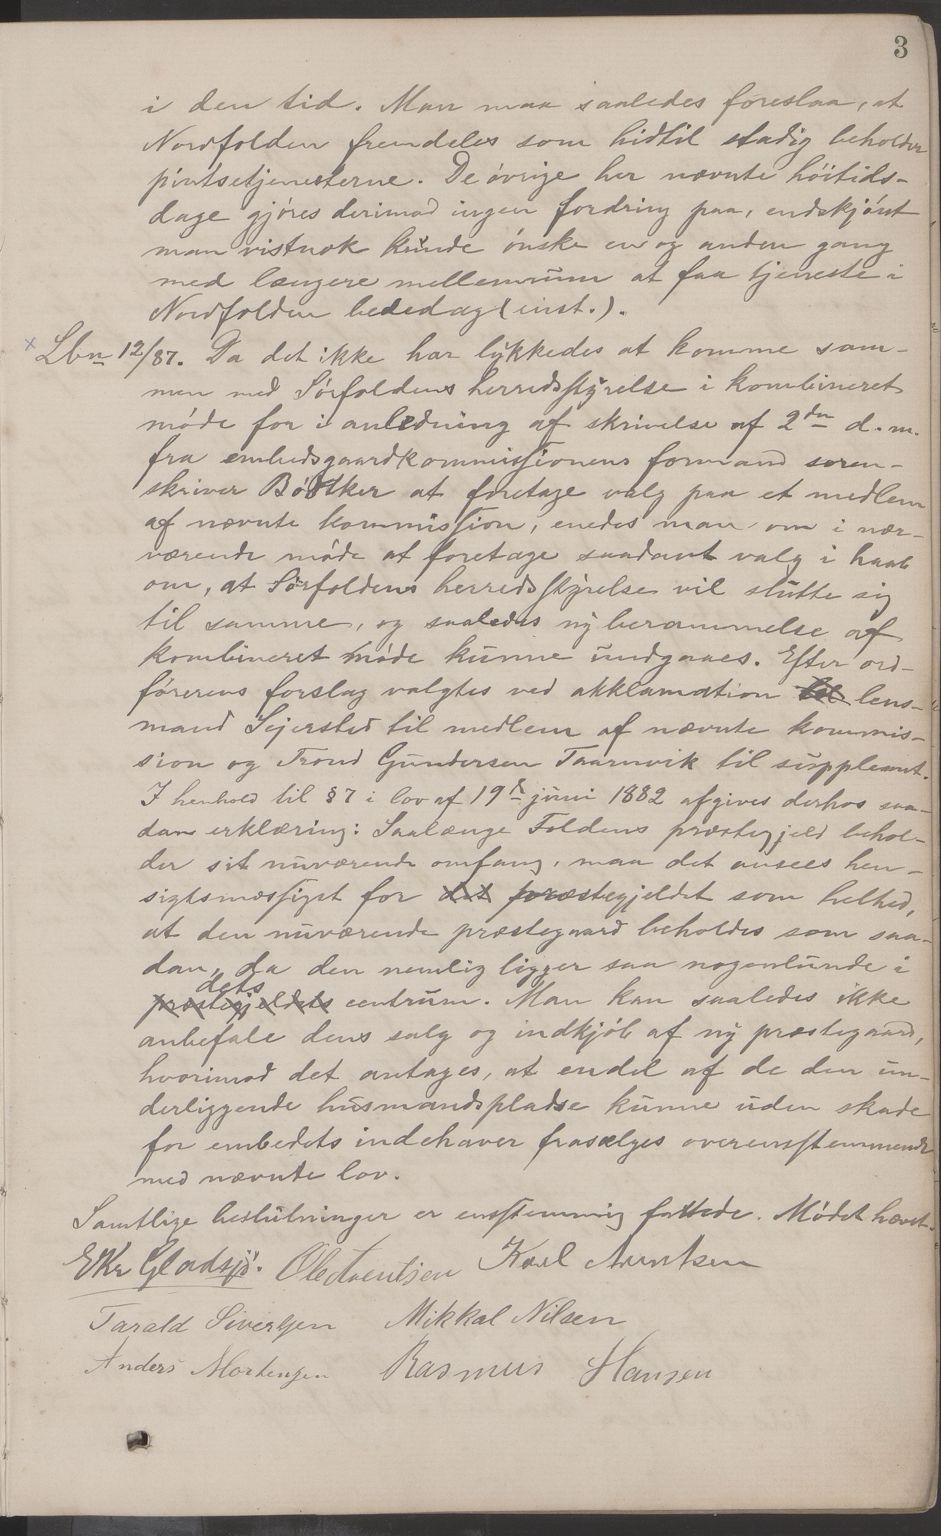 3
i den tid. Man maa saaledes foreslaa, at
Nordfolden fremdeles som hidtil stadig beholder
pintsetjenesterne. De øvrige her nævnte höitids-
dage gjøres derimod ingen fordring paa, endskjönt
man vistnok kunde ønske en og anden gang
med længere mellemrum at faa tjeneste i
Nordfolden bededag (inst.).
x Lbn 12/87. Da det ikke har lykkedes at komme sam-
men med Sörfoldens herredsstyrelse i kombineret
møde for i anledning af skrivelse af 2den d.m.
fra embedsgaardkommissionens formand soren-
skriver Bödtker at foretage valg paa et medlem
af nævnte kommission, enedes man om i nær-
værende møde at foretage saadant valg i haab
om, at Sörfoldens herredsstyrelse vil slutte sig
til samme, og saaledes ny berammelse af
kombineret møde kunne undgaaes. Efter ord-
førerens forslag valgtes ved akklamation til lens-
mand Sejersted til medlem af nævnte kommis-
sion og Trond Gundersen Taarnvik til suppleant.
I henhold til § 7 i lov af 19de juni 1882 afgives derhos saa-
dan erklæring: Saalænge Foldens præstegjeld behol-
der sit nuværende omfang, maa det ansees hen-
sigtsmæssigst for det præstegjeldet som helhed,
at den nuværende præstegaard beholdes som saa-
dan, da den nemlig ligger saa nogenlunde i
dets
præstegjeldets centrum. Man kan saaledes ikke
anbefale dens salg og indkjøb af ny præstegaard,
hvorimod det antages, at endel af de den un-
derliggende husmandspladse kunne uden skade
for embedets indehaver frasælges overensstemmende
med nævnte lov.
Samtlige beslutninger er enstemmig fattede. Mødet hævet.
EKr Gladsjö. Ole Arentsen Karl Arntsen
Tarald Sivertsen Mikkal Nilsen
Anders Mortensen Rasmus Hansen